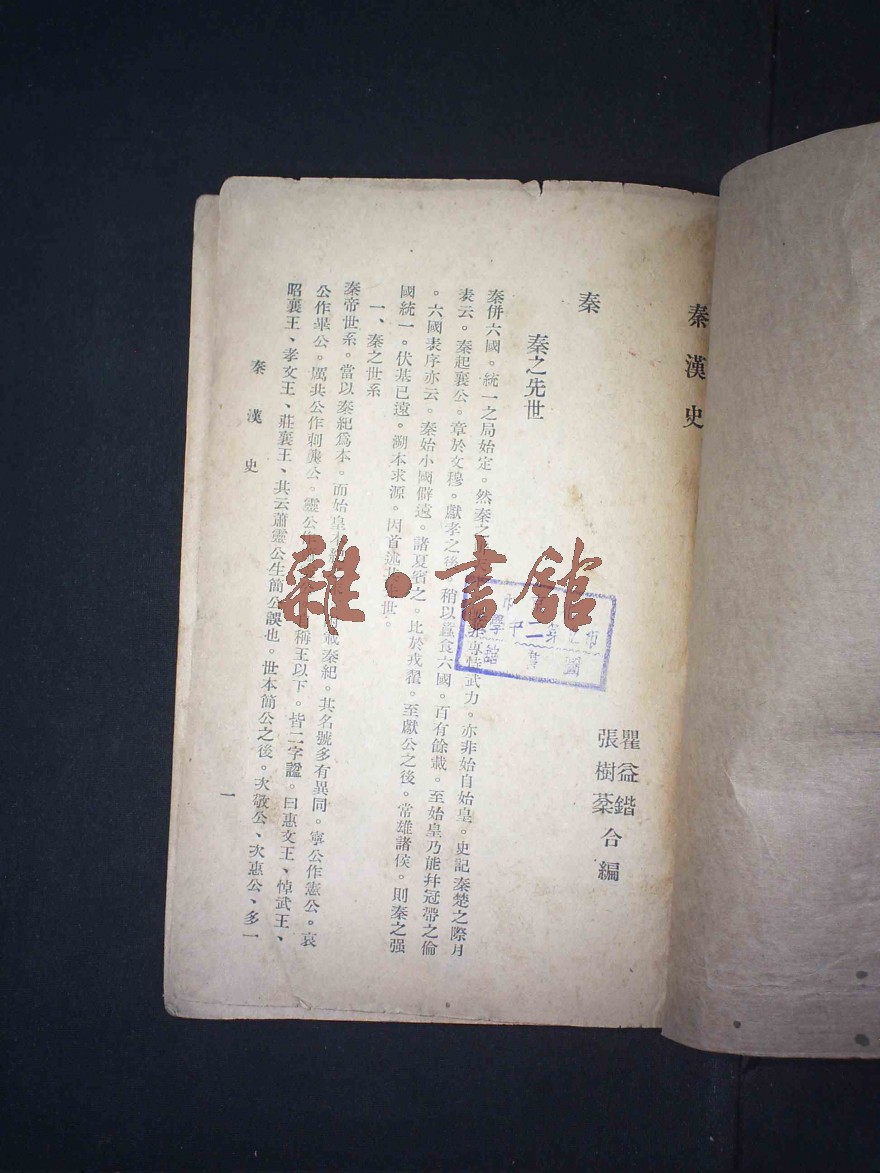 秦漢史
瞿益鍇
張樹棻 合編
秦
秦之先世
秦併六國。統一之局始定。然秦之 專恃武力。亦非始自始皇。史記秦楚之際月
表云。秦起襄公。章於文穆。獻孝之後 稍以蠶食六國。百有餘載。至始皇乃能并冠帶之倫
。六國表序亦云。秦始小國僻遠。諸夏賓之。比於戎翟。至獻公之後。常雄諸侯。則秦之强
國統一。伏基已遠。溯本求源。因首述 世。
一、秦之世系
秦帝世系。當以秦紀爲本。而始皇本紀 載秦紀。其名號多有異同。寧公作憲公。哀
公作畢公。厲共公作刺龔公。靈公 稱王以下。皆二字諡。曰惠文王、悼武王、
昭襄王、孝文王、莊襄王、其云肅靈公生簡公誤也。世本簡公之後。次敬公、次惠公、多一
秦漢史
一
雜·書館
圖